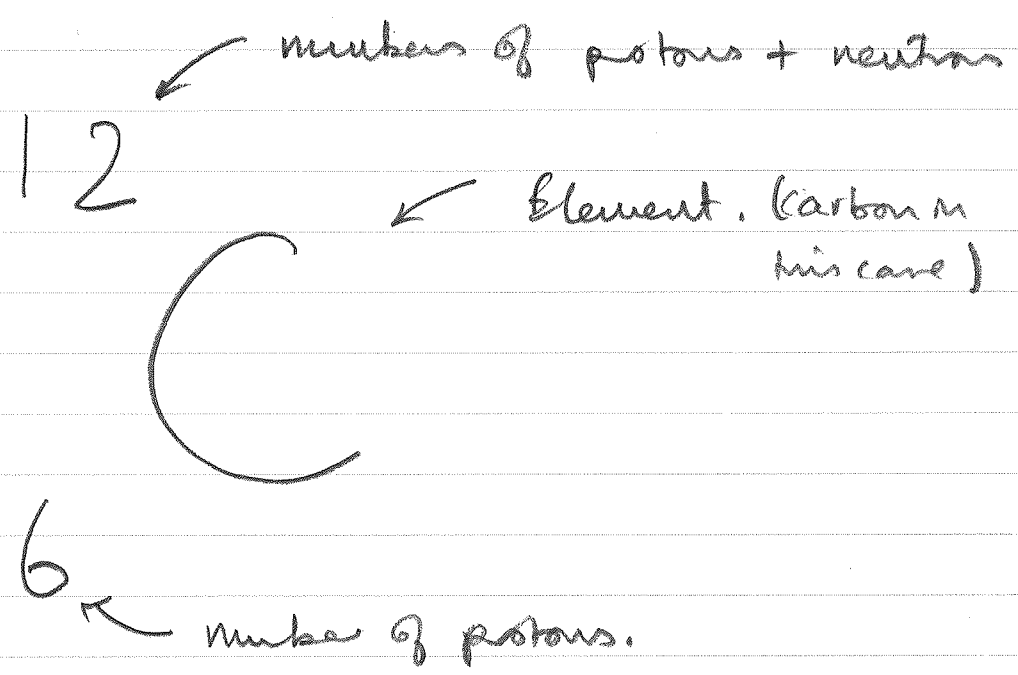 numbers of protons + neutrons
12
Element. (Carbon in
this case)
C
6
number of protons.